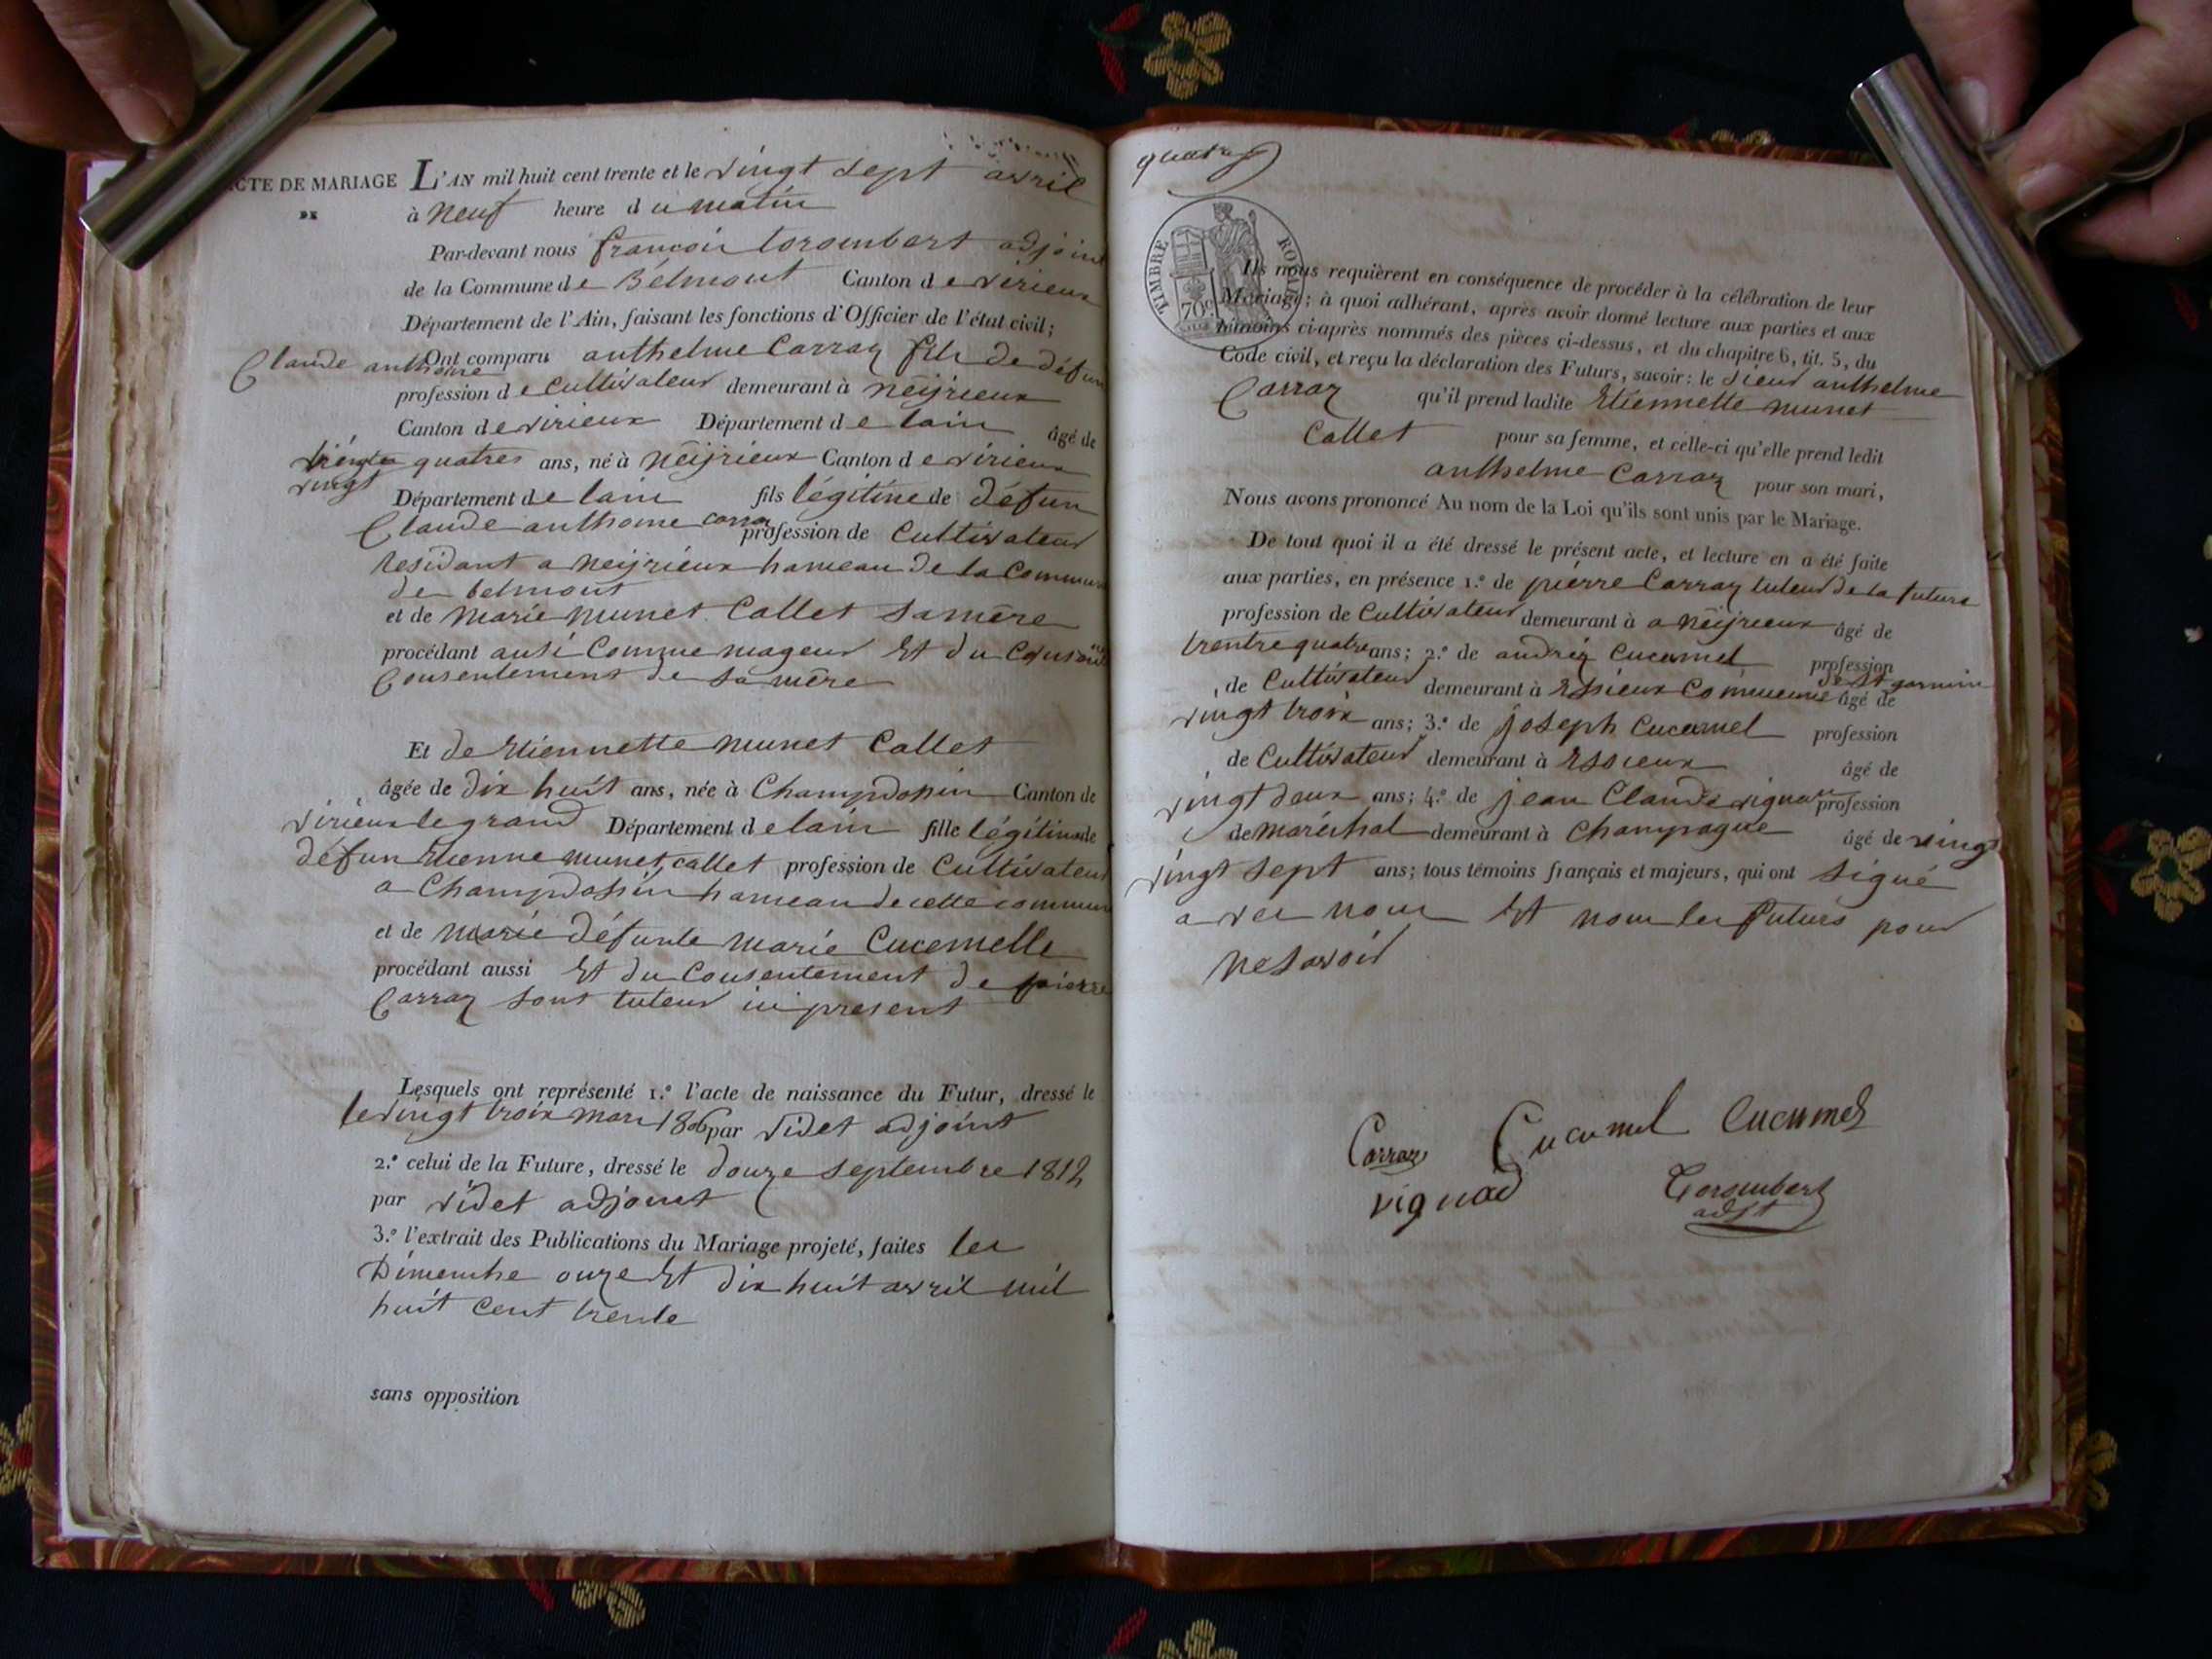 ACTE DE MARIAGE L'AN mil huit cent trente et le vingt sept avril
DE à neuf heure du matin
Par-devant nous françois torombert adjoint
de la Commune de Bélmont Canton de virieux
Département de l'Ain, faisant les fonctions d'Officier de l'état civil;
Ont comparu anthelme Carraz fils de défun
Claude anthoine
profession de cultivateur demeurant à neijrieux
Canton de virieux Département de lain âgé de
vingt quatres ans, né à neijrieux Canton de virieux
Département de lain fils légitime de défun
Claude anthoine carraz profession de Cultivateur
residant a neijrieux hameau de la Commune
de belmont
et de marie munet Callet sa mère
procédant ausi Comme mageur Et du
Consentement de sa mère
Et de Etiennette munet Callet
âgée de dix huit ans, née à Champdossin Canton de
virieux le grand Département de lain fille légitime de
défun Etienne munet callet profession de Cultivateur
a Champdossin hameau de cette commune
et de marie défunte marie Cucemelle
procédant aussi Et du Consentement de pierre
Carraz sont tuteur ici present
Lesquels ont représenté 1.º l'acte de naissance du Futur, dressé le
le vingt troix mars 1806 par videt adjoint
2.º celui de la Future, dressé le douze septembre 1812
par videt adjoint
3.º l'extrait des Publications du Mariage projeté, faites les
Dimenche onze Et dix huit avril mil
huit cent trente
sans opposition
quatre
TIMBRE ROYAL
70c
Ils nous requièrent en conséquence de procéder à la célébration de leur
Mariage; à quoi adhérant, après avoir donné lecture aux parties et aux
témoins ci-après nommés des pièces çi-dessus, et du chapitre 6, tit. 5, du
Code civil, et reçu la déclaration des Futurs, savoir: le sieur anthelme
Carraz qu'il prend ladite Etiennette munet
Callet pour sa femme, et celle-ci qu'elle prend ledit
anthelme Carraz pour son mari,
Nous avons prononcé Au nom de la Loi qu'ils sont unis par le Mariage.
De tout quoi il a été dressé le présent acte, et lecture en a été faite
aux parties, en présence 1.º de pierre Carraz tuteur de la future
profession de Cultivateur demeurant à a neijrieux âgé de
trentre quatre ans; 2.º de andréz Cucumel profession
de Cultivateur demeurant à Essieux Commune de St germin âgé de
vingt troix ans; 3.º de joseph Cucumel profession
de Cultivateur demeurant à Essieux âgé de
vingt deux ans; 4.º de jean Claude vignad profession
de maréchal demeurant à Champagne âgé de vingt
vingt sept ans; tous témoins français et majeurs, qui ont signé
avec nous Et nom les futurs pour
ne savoir
Carraz Cucumel Cucumel
vignad Torombert
adjt